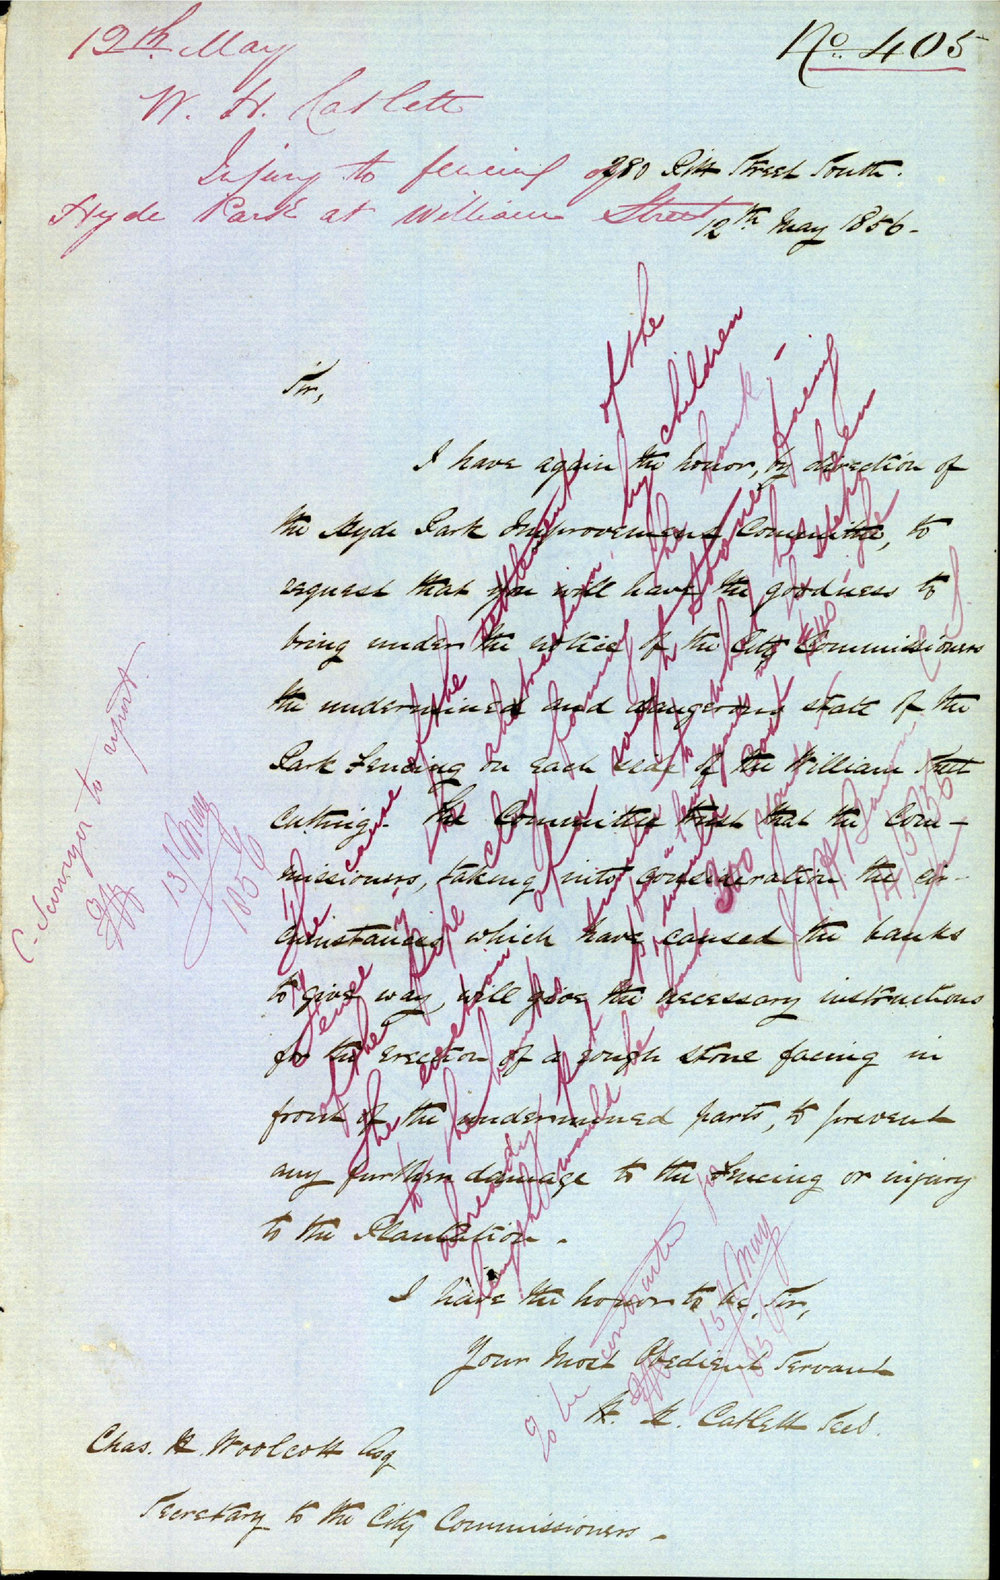 12th May
No. 405
W. H. Catlett
Injury to fencing of
Hyde Park at William Street
280 Pitt Street South.
12th May 1856.
Sir,
I have again the honor, by direction of
the Hyde Park Improvement Committee, to
request that you will have the goodness to
bring under the notice of the City Commissioners
the undermined and dangerous state of the
Park Fencing on each side of the William Street
Cutting. The Committee trust that the Com-
missioners, taking into consideration the cir-
cumstances which have caused the banks
to give way, will give the necessary instructions
for the erection of a rough stone facing in
front of the undermined parts, to prevent
any further damage to the Fencing or injury
to the Plantation.
I have the honor to be, Sir,
Your Most Obedient Servant
W. H. Catlett Sec.
Chas. H. Woolcott Esq
Secretary to the City Commissioners.
C. Surveyor to report.
13 May
1856
The cause of the settlement of the
fence is abstraction, by children
of the pipe clay forming the bank
the erection of a rough stone facing
to the bank
already
length would be about 200 yards
14/5/56
To be constructed
15 May
1856